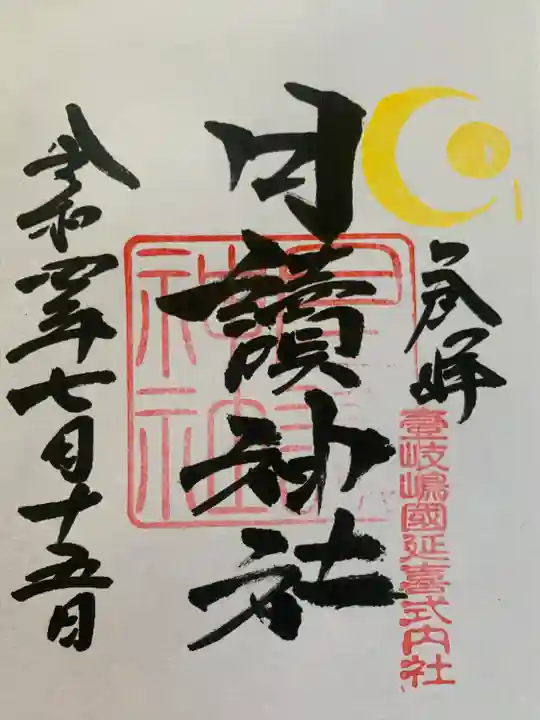 奉拝
壹岐嶋國延喜式内社
月讀神社
神社
令和四年七月十五日